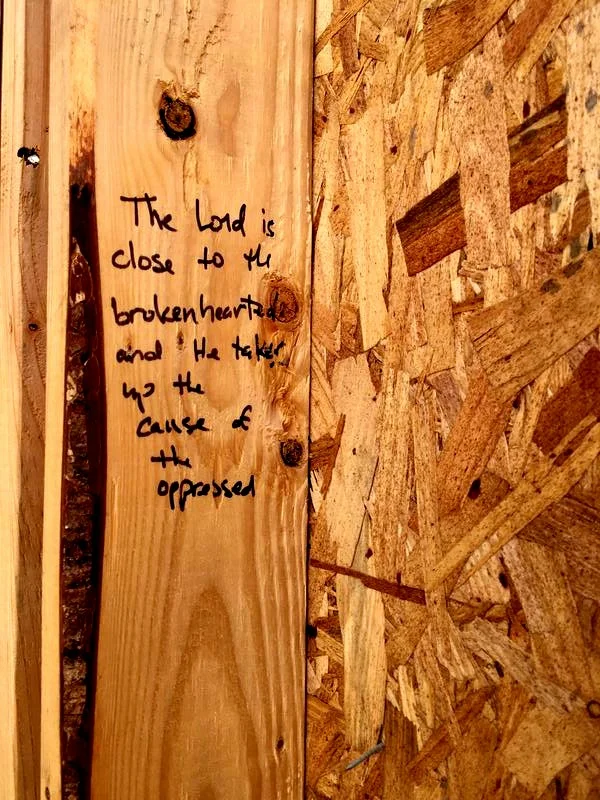 The Lord is
close to the
brokenhearted
and He takes
up the
cause of
the
oppressed